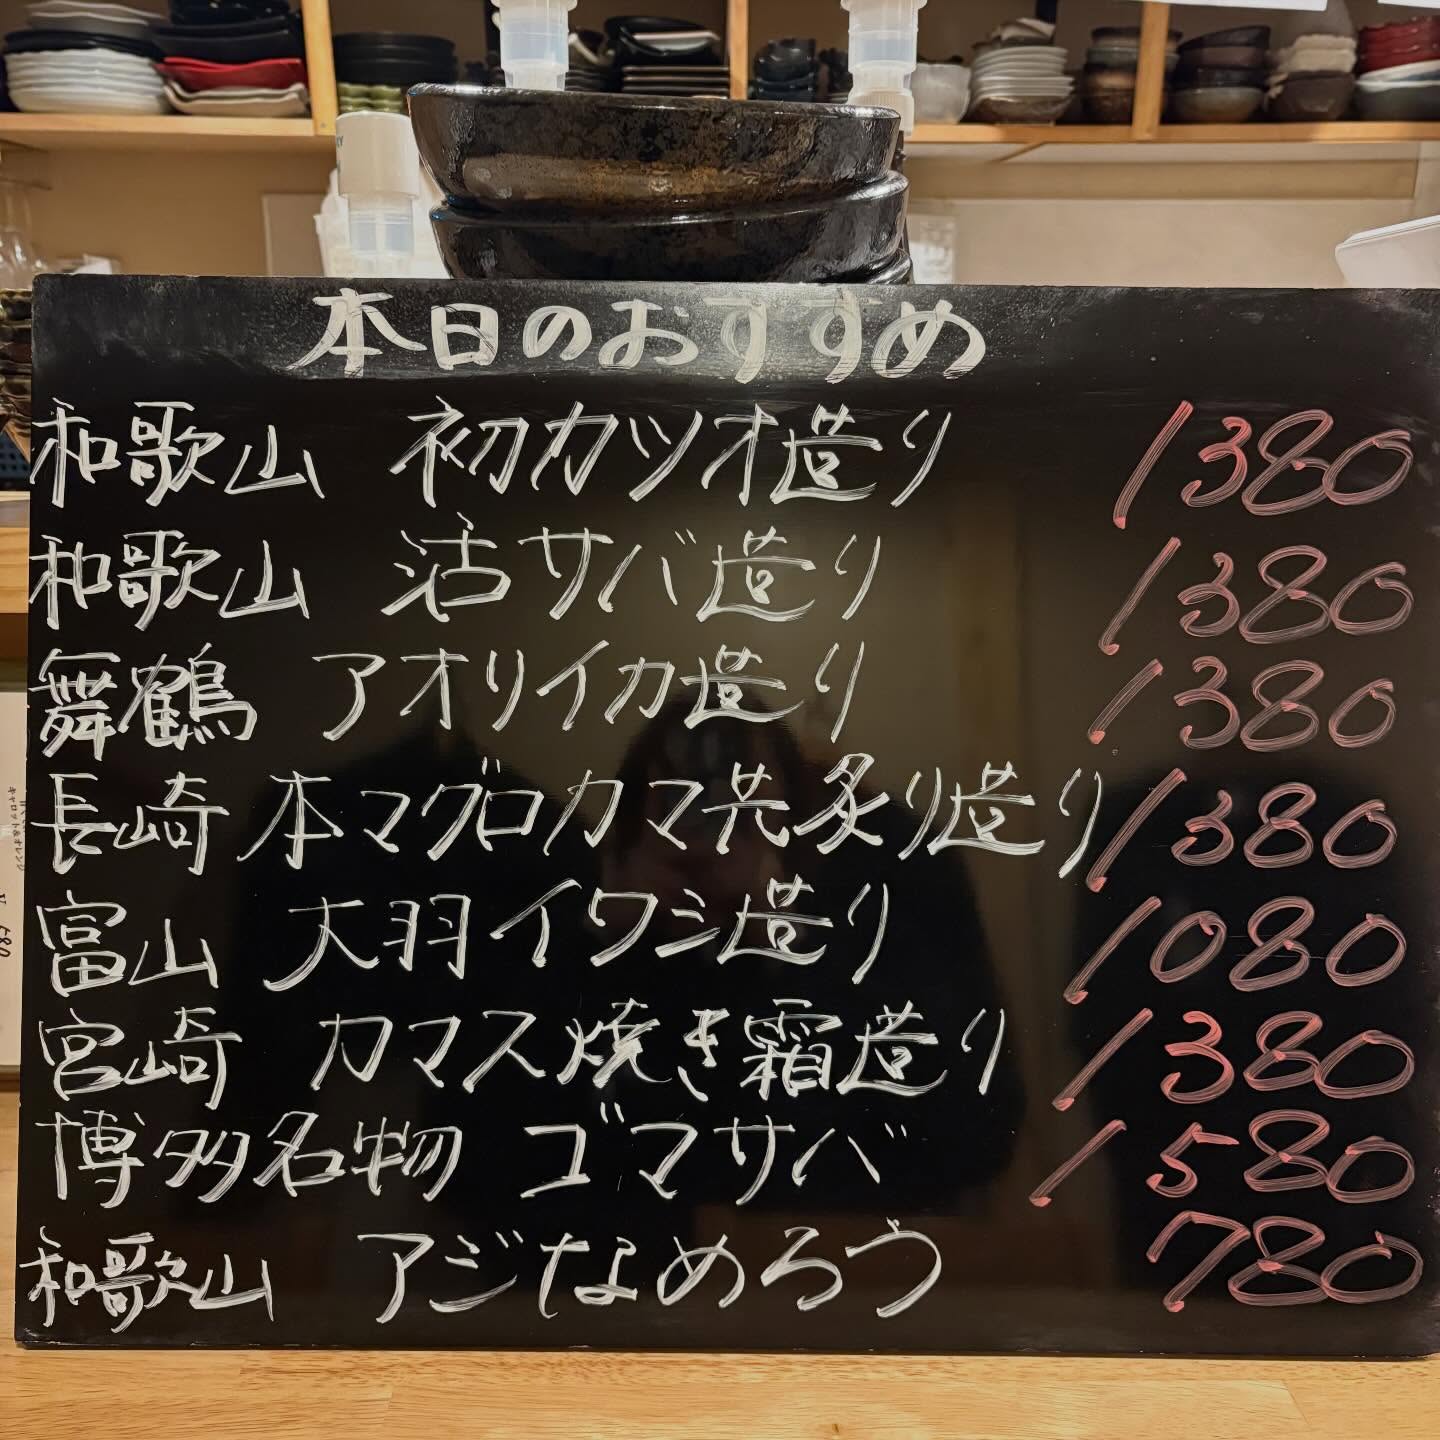 本日のおすすめ
和歌山 初カツオ造り 1380
和歌山 活サバ造り 1380
舞鶴 アオリイカ造り 1380
長崎 本マグロカマ先炙り造り 1380
富山 大羽イワシ造り 1080
宮崎 カマス焼き霜造り 1380
博多名物 ゴマサバ 1580
和歌山 アジなめろう 780